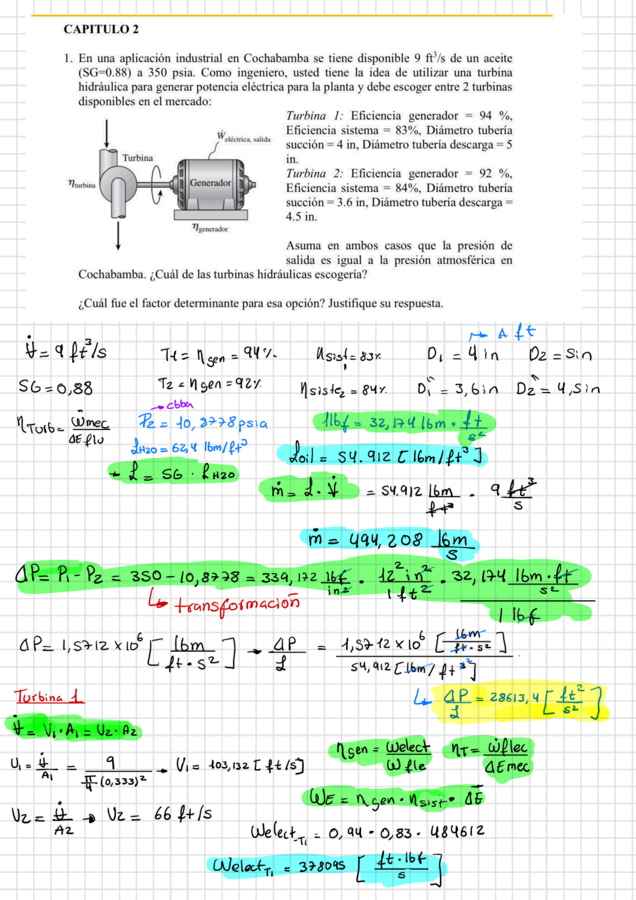 CAPITULO 2
1. En una aplicación industrial en Cochabamba se tiene disponible 9 ft³/s de un aceite
(SG=0.88) a 350 psia. Como ingeniero, usted tiene la idea de utilizar una turbina
hidráulica para generar potencia eléctrica para la planta y debe escoger entre 2 turbinas
disponibles en el mercado:
Turbina 1: Eficiencia generador = 94 %,
Eficiencia sistema = 83%, Diámetro tubería
succión = 4 in, Diámetro tubería descarga = 5
in.
Turbina 2: Eficiencia generador = 92 %,
Eficiencia sistema = 84%, Diámetro tubería
succión = 3.6 in, Diámetro tubería descarga =
4.5 in.
Ẇeléctrica, salida
Turbina
ηturbina
Generador
ηgenerador
Asuma en ambos casos que la presión de
salida es igual a la presión atmosférica en
Cochabamba. ¿Cuál de las turbinas hidráulicas escogería?
¿Cuál fue el factor determinante para esa opción? Justifique su respuesta.
→ A ft
V̇ = 9 ft³/s T1 = ηgen = 94% ηsist1 = 83% D1 = 4 in D2 = 5in
SG = 0,88 T2 = ηgen = 92% ηsiste2 = 84% D1" = 3,6in D2" = 4,5in
→ cbba
ηTurb = Ẇmec / ΔE flu P2 = 10,8778 psia 1lbf = 32,174 lbm · ft/s²
ρH2O = 62,4 lbm/ft³ ρoil = 54.912 [lbm/ft³]
ρ = SG · ρH2O ṁ = ρ · V̇ = 54.912 lbm/ft³ · 9 ft³/s
ṁ = 494,208 lbm/s
ΔP = P1 - P2 = 350 - 10,8778 = 339,122 lbf/in² · 12² in²/1 ft² · 32,174 lbm·ft/s² / 1 lbf
↳ transformación
ΔP = 1,5712 × 10⁶ [lbm/ft·s²] → ΔP/ρ = 1,5712 × 10⁶ [lbm/ft·s²] / 54,912 [lbm/ft³]
Turbina 1
↳ ΔP/ρ = 28613,4 [ft²/s²]
V̇ = V1 · A1 = V2 · A2
U1 = V̇/A1 = 9 / π/4 (0,333)² → V1 = 103,132 [ft/s] ηgen = Welect/W fle ηT = Ẇflec/ΔEmec
ẆE = ηgen · ηsist · ΔĖ
U2 = V̇/A2 → U2 = 66 ft/s
Welect_T1 = 0,94 · 0,83 · 484612
Welect_T1 = 378095 [ft·lbf/s]